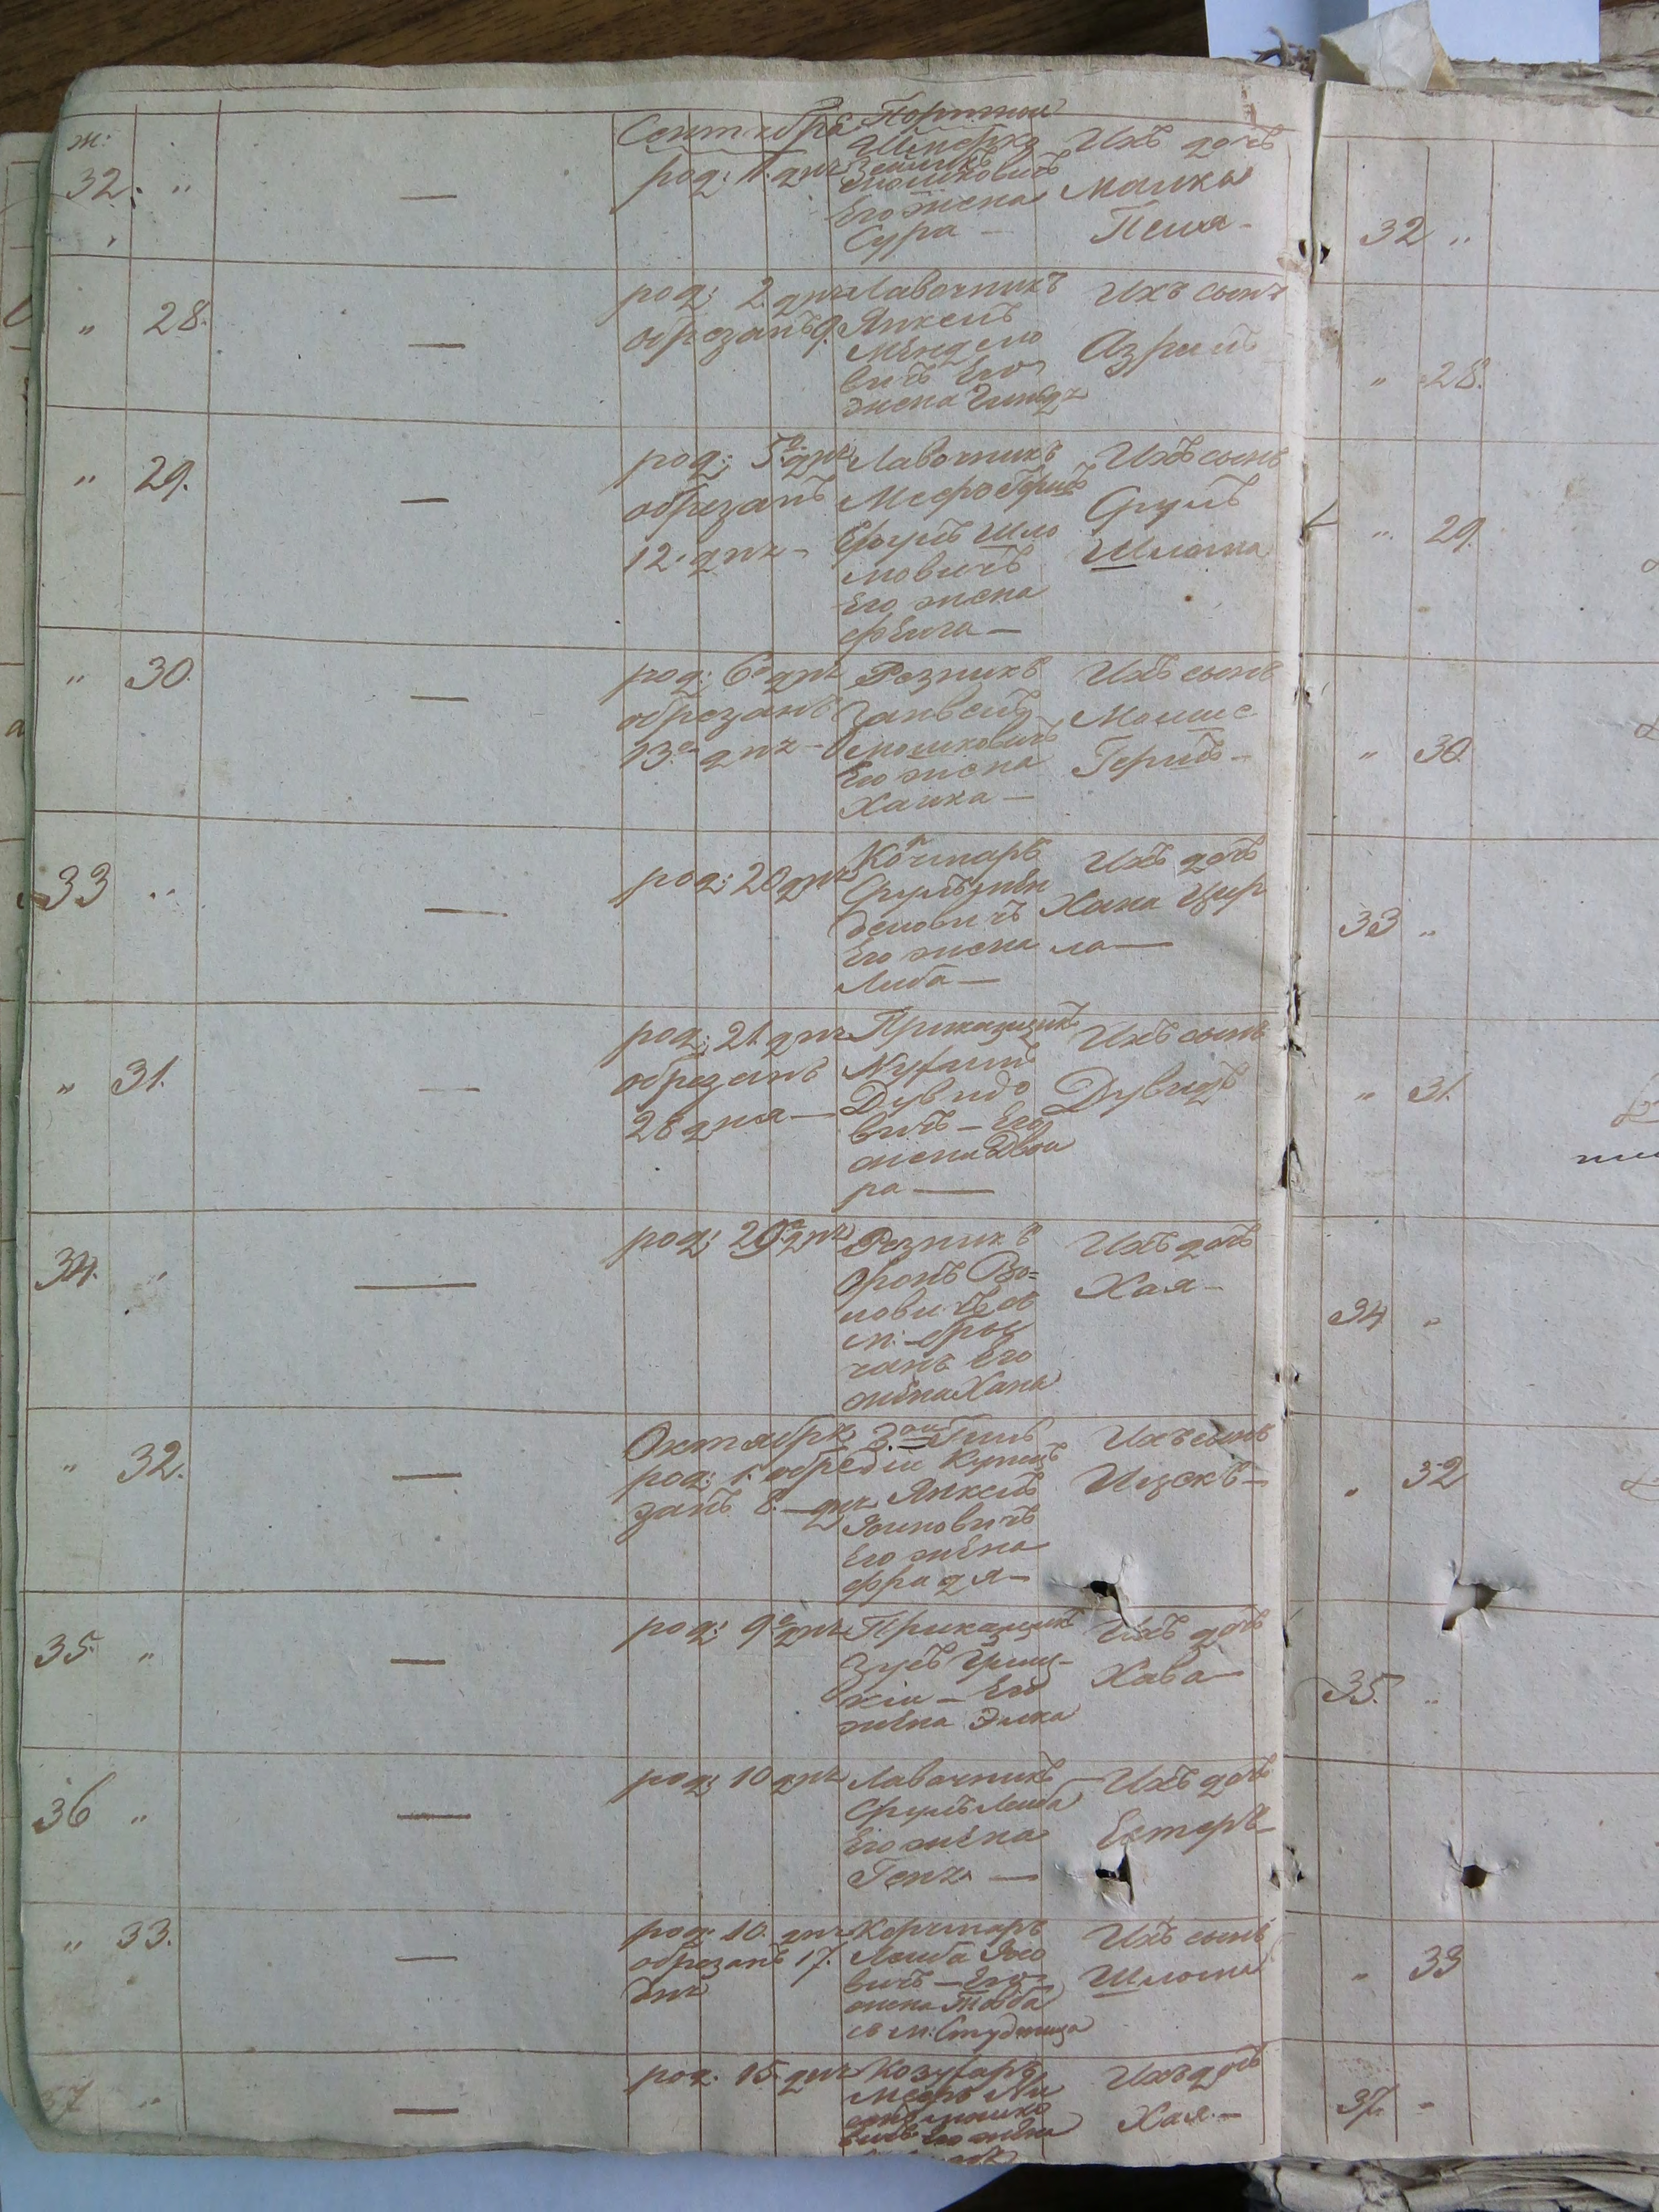 ж:
32. "
Сентября
род: 1. дня
Портной
Мошковичъ
Его жена
Сура —
Ихъ дочь
Малка
Песия -
32 "
" 28.
род: 2 дня
обрезанъ 9.
Лавочникъ
Янкель
МенделО
вичъ Его
жена
Ихъ сынъ
Азриль
" 28.
" 29.
род: 5го дня
обрезанъ
12. дня -
Лавочникъ
Сруль Шло
мовичъ
Его жена
фейга —
Ихъ сынъ
Сруль
Шлома
" 29.
" 30.
род: 6го дня
обрезанъ
13го дня -
Резникъ
Занвель
Мошковичъ
Его жена
Хайка —
Ихъ сынъ
Мошие
Гершъ -
" 30.
33 "
род: 20 дня
Корчмаръ
Срульмен
делювичъ
Его жена
Либа —
Ихъ дочь
Хана Цир
ла —
33 "
" 31.
род: 21. дня
обрезанъ
28 дня —
Приказщикъ
Нухимъ
Дувидо
вичъ — Его
жена Двой
ра —
Ихъ сынъ
Дувидъ
" 31.
34. "
род: 29го дня
Резникъ
Оронъ
чанъ Его
жена Хана
Ихъ дочь
Хая -
34 "
" 32.
Октября
род: 1. обре
занъ 8. — дня
3ой Гиль
дии Купецъ
Янкель
Его жена
фрадя —
Ихъ сынъ
Ицекъ —
" 32
35. "
род: 9го дня
Приказщикъ
Зусь Гриц-
кiй — Его
жена Элка
Ихъ дочь
Хава —
35. "
36 "
род: 10 дня
Лавочникъ
Срульлейба
Его жена
Геня —
Ихъ дочь
Естеръ —
" 33.
род: 10. дня
обрезанъ 17.
дня
Корчмаръ
Лейба Йосо
вичъ — Его
жена Тойба
въ м: Студеница
Ихъ сынъ
Шлома
" 33
37 "
род: 15 дня
Мошко
вичъ Его жена
Ихъ дочь
Хая. —
37. "